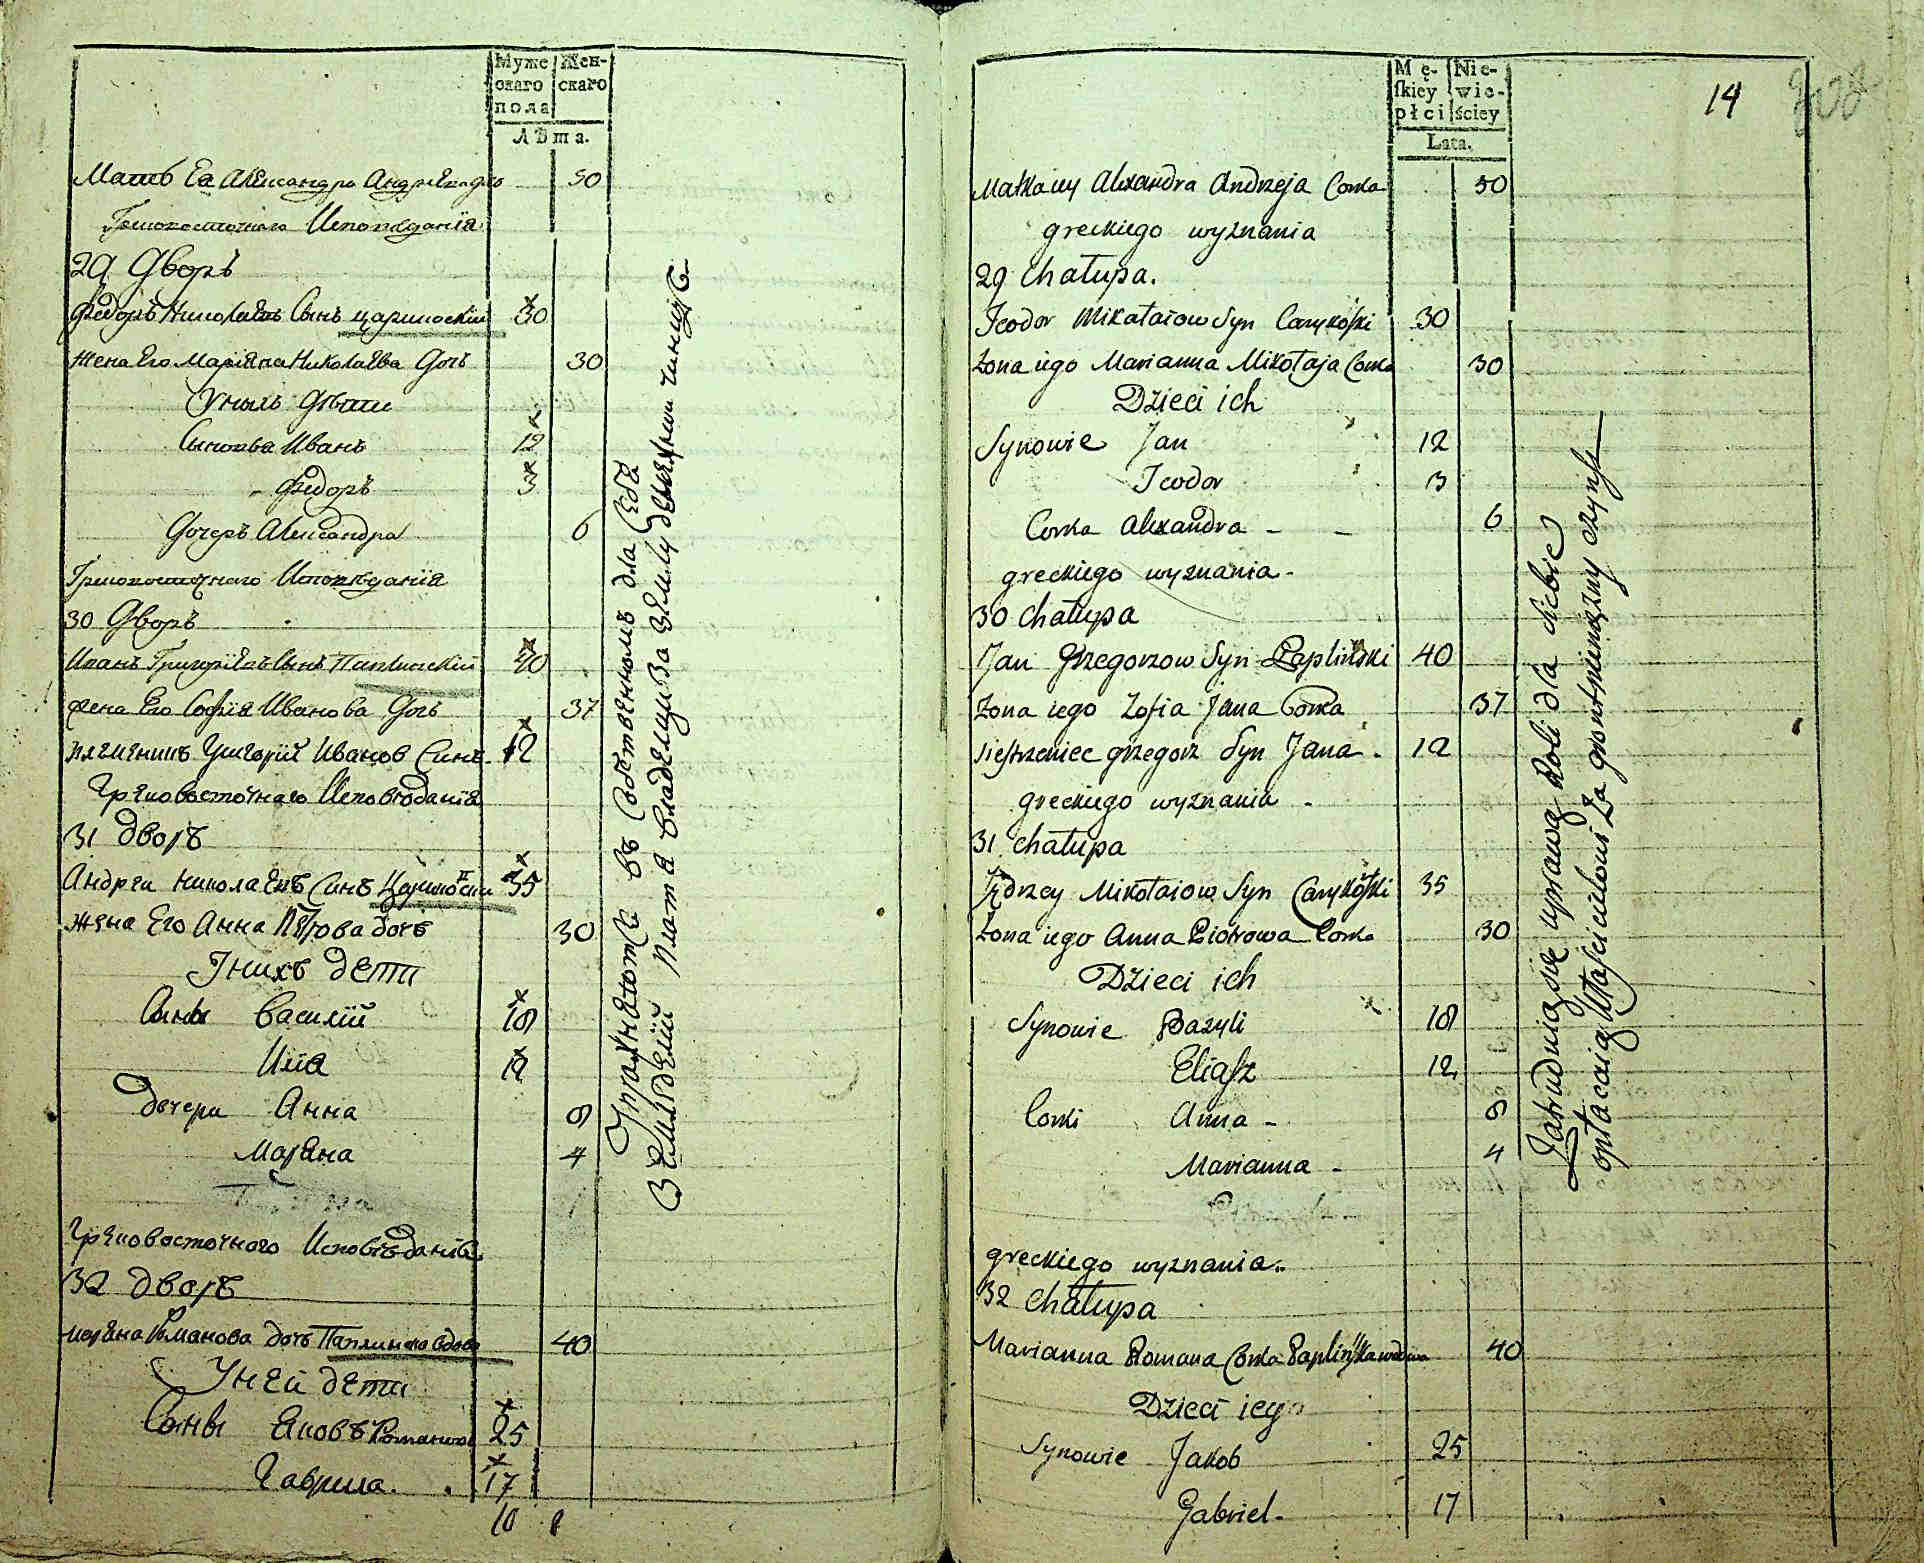 Муже
скаго
пола
Жен-
скаго
Лѣта.
Мать Ея Александра Андреева дочь 50
Грековосточнаго Исповеданїя
29 Дворъ
Федоръ Николаевъ Сынъ Цариковскiй 30
Жена Его Марїяна Николаева Дочь 30
У нихъ Дѣти
Сыновья Иванъ 12
Федоръ 3
Дочерь Александра 6
Грековосточнаго Исповѣданїя
30 Дворъ
Иванъ Григорїевъ Сынъ Паплинскiй 40
Жена Его Софїя Иванова Дочь 37
племенникъ Григорїй Иванов Синъ 12
Грековосточнаго Исповѣданїя
31 Дворъ
Андреи Николаевъ Синъ 35
Жена Его Анна Петрова дочь 30
У нихъ дети
Сины Василїй 18
Илїя 12
Дочери Анна 8
Маряна 4
Грековосточного Исповѣданїя
32 дворъ
Маряна Романова дочь Паплинска вдова 40
У ней дети
Сыны Яковъ Романов 25
Гаврила. 17
10 8
Упражняются въ Собственномъ для Себя
Земледелїи Платя Владелцу за Землю денежни чиншъ
Mę-
skiey
płci
Nie-
wie-
ściey
Lata.
14
Matka iey Alexandra Andrzeja Corka 50
greckiego wyznania
29 Chałupa.
Teodor Mikołaiow Syn Carykoski 30
Żona iego Marianna Mikołaja Corka 30
Dzieci ich
Synowie Jan 12
Teodor 3
Corka Alexandra - - 6
greckiego wyznania -
30 Chałupa
Jan Grzegorzow Syn Paplinski 40
Żona iego Zofia Jana Corka 37
siestrzeniec grzegorz Syn Jana - 12
greckiego wyznania -
31 Chałupa
Jędrzey Mikołaiow Syn Carykoski 35
Żona iego Anna Piotrowa Corka 30
Dzieci ich
Synowie Bazyli 18
Eliasz 12
Corki Anna - 8
Marianna - 4
greckiego wyznania..
32 Chałupa
Marianna Romana Corka Paplinska wdowa 40
Dzieci iey
Synowie Jakob 25
Gabriel - 17
Zatrudniaią się uprawą Roli dla siebie
opłacaiąc Włascicielowi Za gront pieniężny czynsz